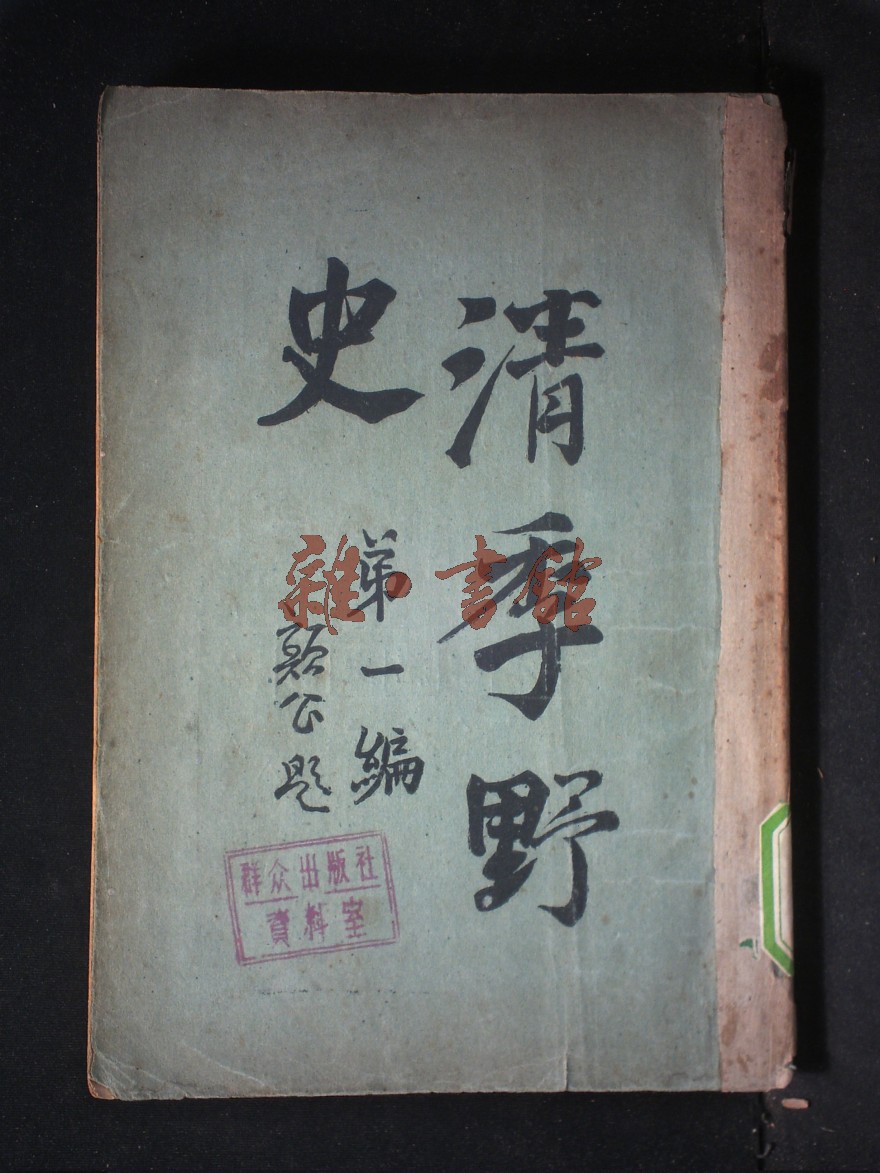 清季野
史
第一編
頴公題
群众出版社
資料室
雜·書館